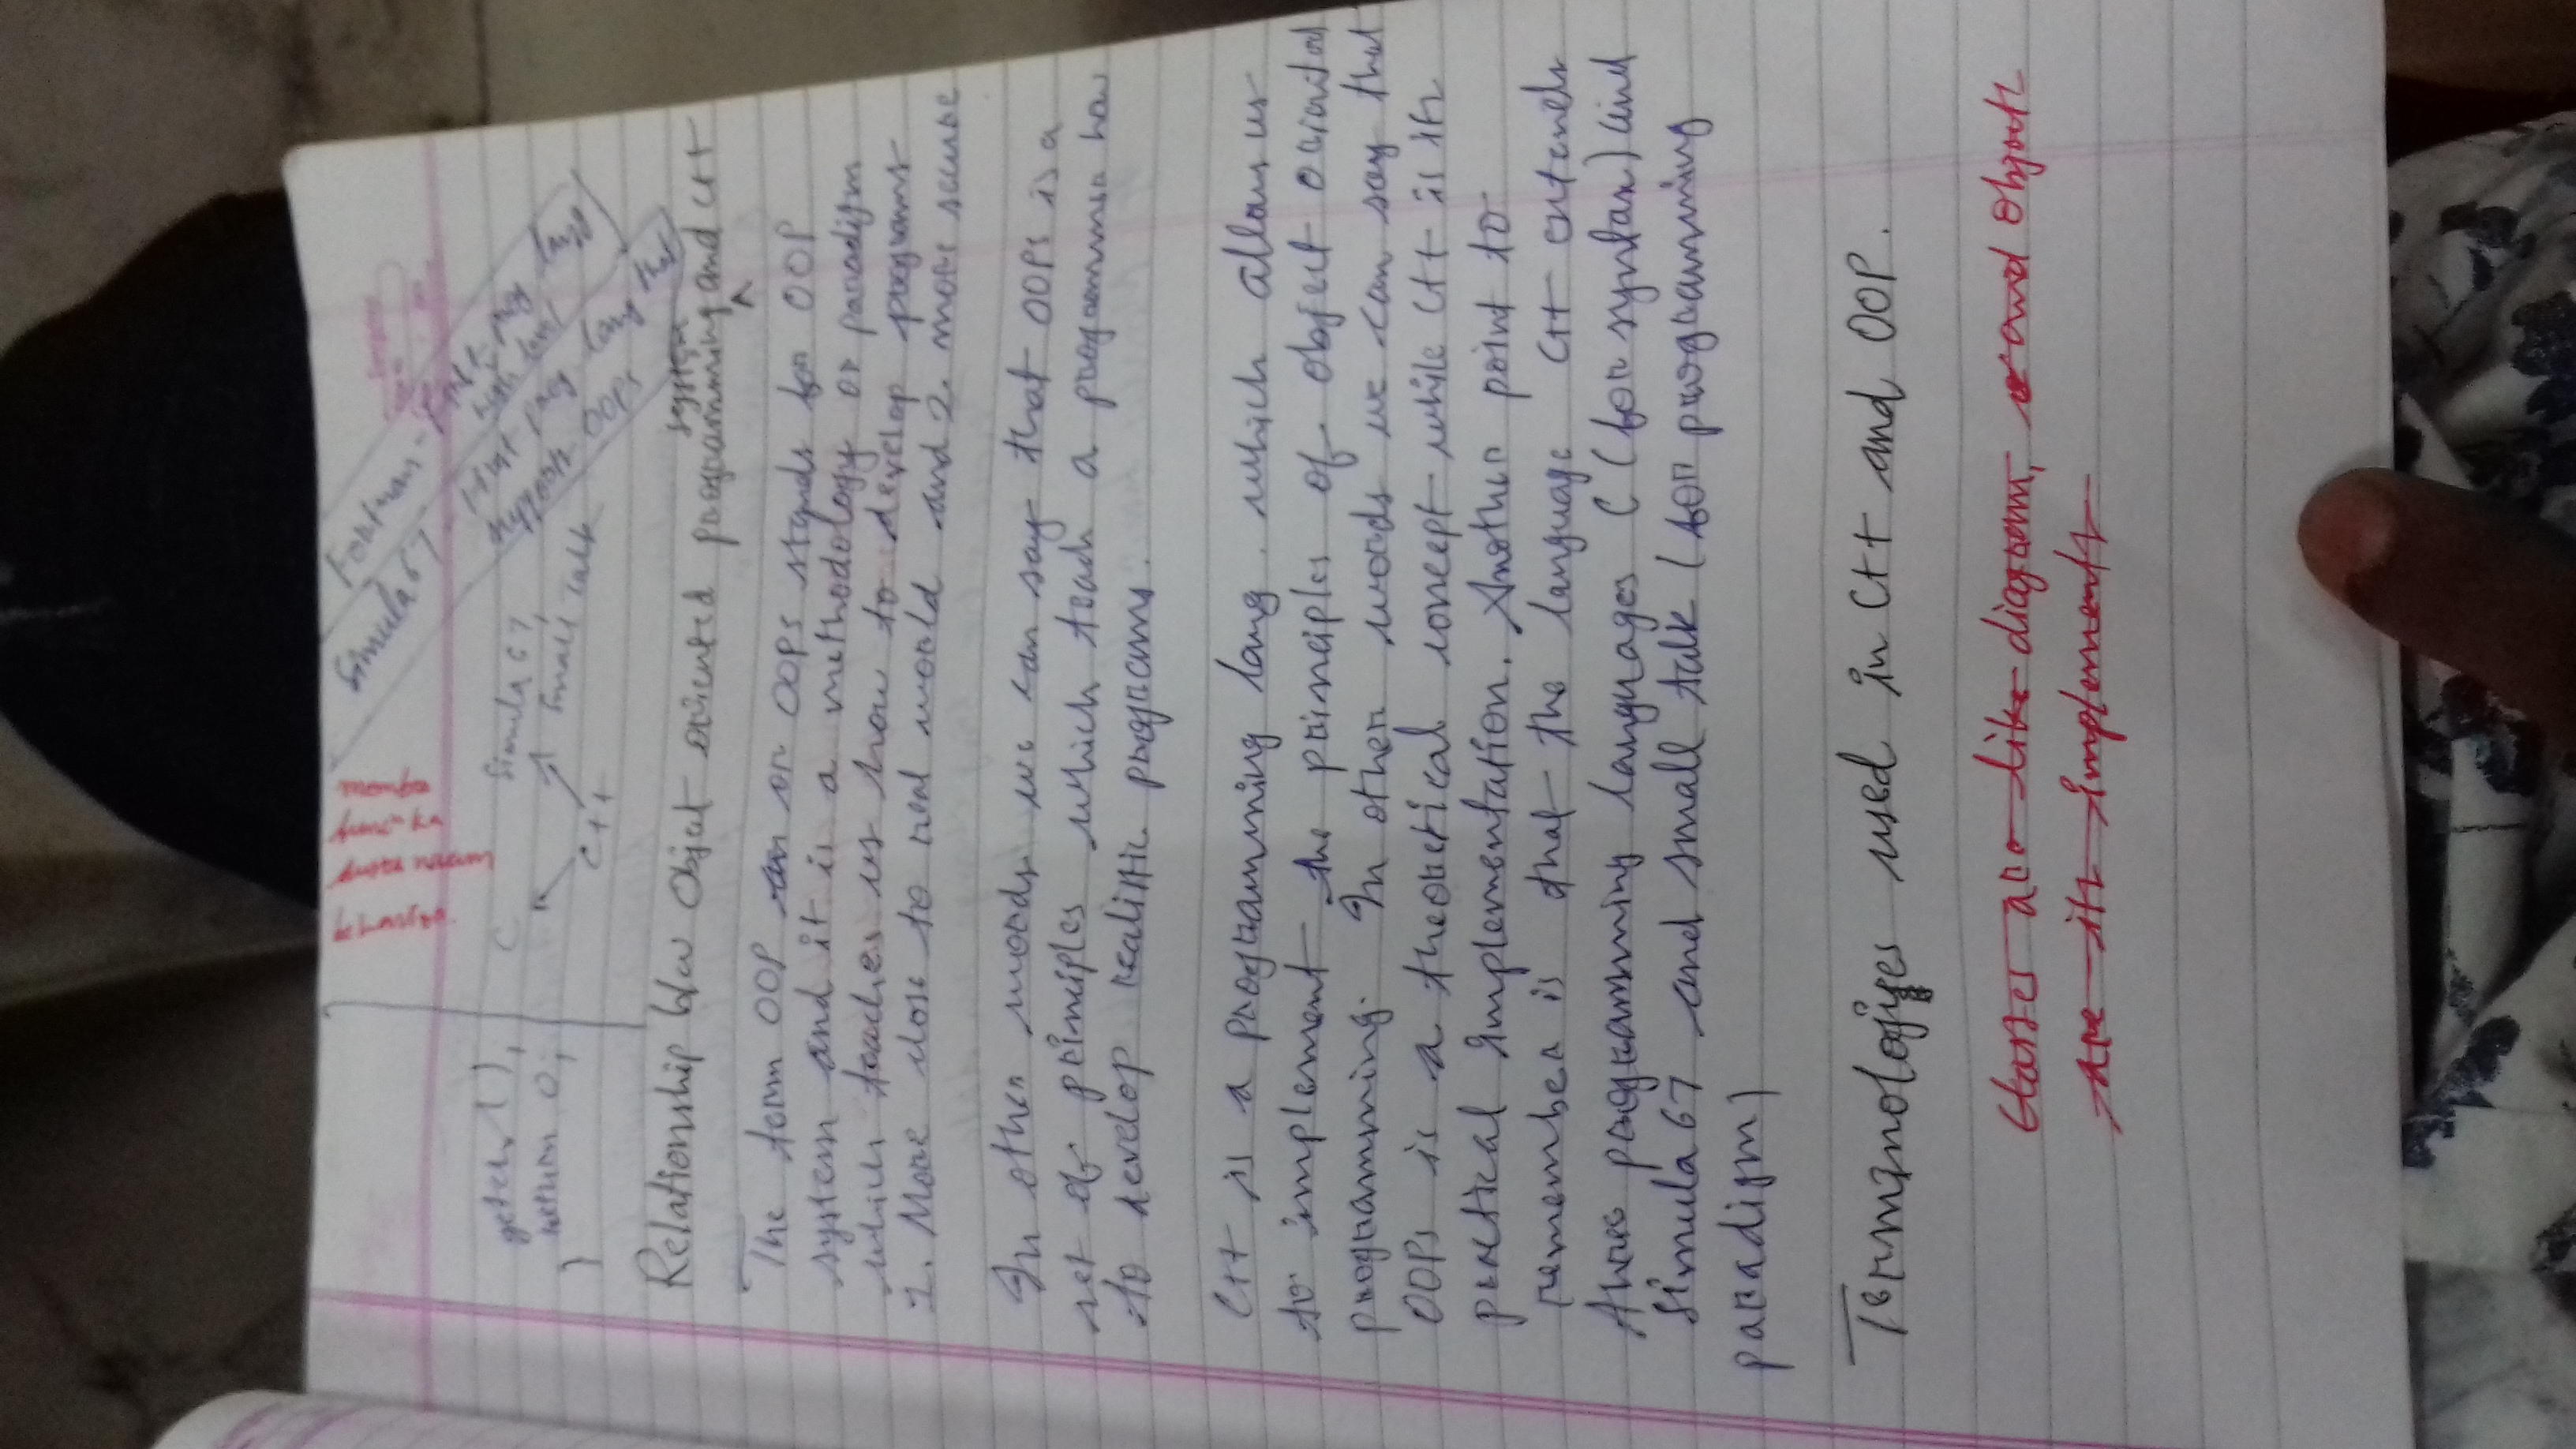 getch();
return 0;
}
C
Simula 67,
Small talk
C++
Fortran - first prog lang
high level
Simula 67 - first prog lang that
supports OOPs
Relationship b/w Object oriented programming system and C++
The term OOP or OOPs stands for OOP
system and it is a methodology or paradigm
which teaches us how to develop programs
1. More close to real world and 2. more secure
In other words we can say that OOPs is a
set of principles which teach a programmer how
to develop realistic programs.
C++ is a programming lang. which allows us
to implement the principles of object oriented
programming. In other words we can say that
OOPs is a theoretical concept while C++ is its
practical implementation. Another point to
remember is that the language C++ extends
three programming languages C (for syntax) and
Simula 67 and small talk (for programming
paradigm)
Terminologies used in C++ and OOP.
Classes are like diagram, and objects
are its implements